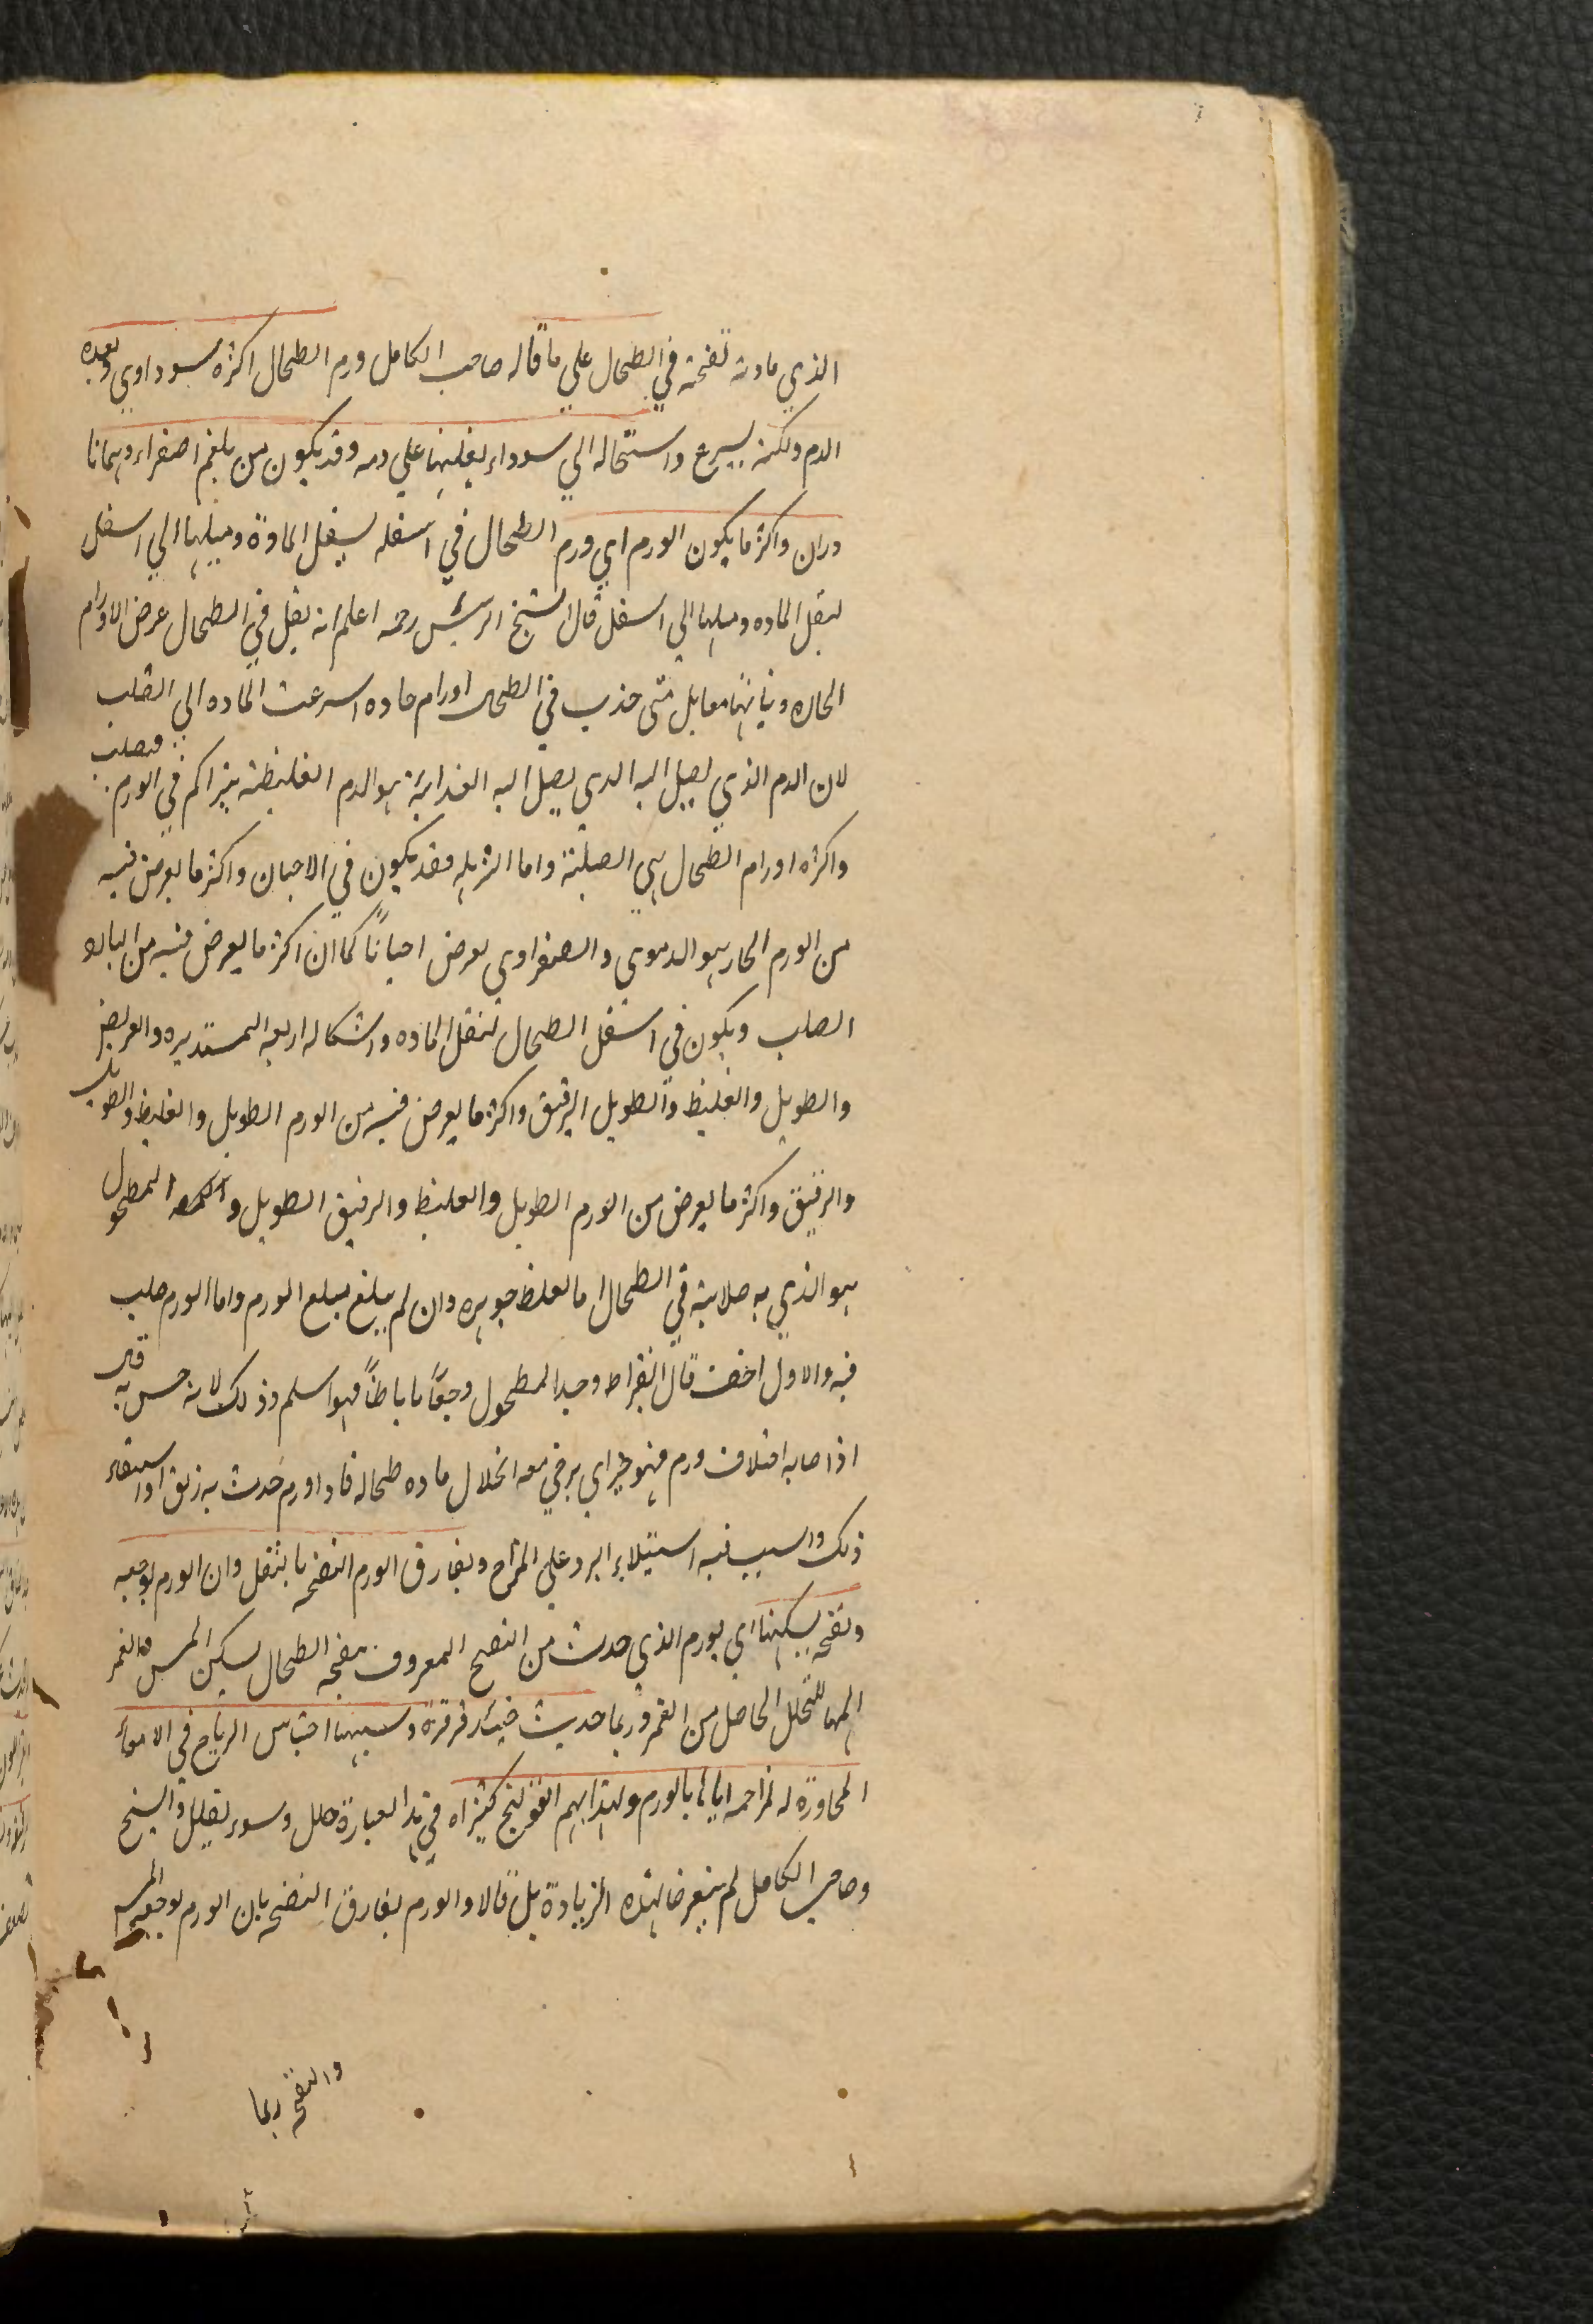 الذي مادته نفخية في الطحال علي ما قاله صاحب الكامل ورم الطحال اكثره سوداوي وبعده
الدم ولكنه يسرع واستحاله الي سوداء يغلبها علي دمه وقد يكون من بلغم اصفراء وهمانا
دران واكثر ما يكون الورم اي ورم الطحال في اسفله لسفل المادة وميلها الي اسفل
لثقل الماده وميلها الي اسفل قال الشيخ الرئيس رحمه اعلم انه يقل في الطحال عرض الاورام
الحاره متي حذب في الطحال اورام حاده اسرعت الماده الي الصلب
لان الدم الذي يصل اليه الدي يصل اليه الغذائية هو الدم الغليظة يتراكم في الورم فصلب
واكثره اورام الطحال هي الصلبة واما فقد يكون في الاحيان واكثر ما يعرض فيه
من الورم الحار هو الدموي والصفراوي يعرض احياناً كما ان اكثر ما يعرض فيه من البارد
الصلب ويكون في اسفل الطحال لثقل الماده واشكاله اربعه المستديره والعريض
والطويل والغليظ والطويل الرقيق واكثر ما يعرض فيه من الورم الطويل والغليظ والطويل
والرقيق واكثر ما يعرض من الورم الطويل والغليظ والرقيق الطويل و المطحول
هو الذي به صلابة في الطحال اما لغلظ جوهره وان لم يبلغ مبلغ الورم واما الورم صلب
فيه والاول اخف قال ابقراط وجد المطحول وجعاً باطناً فهو اسلم وذلك لانه حس به قال
اذا اصابه اختلاف ورم فهو خير اي يرجي معه انحلال ماده طحاله فاذا ورم حدث به زلق او استسقاء
ذلك والسبب فيه استيلاء البرد علي المزاج ويفارق الورم النفخة بالثقل وان الورم يوجعه
ونفخه يسكنها اي بورم الذي حدث من النفخ المعروف بنفخه الطحال يسكن المس والغمز
المها للتحلل الحاصل من الغمز وربما حديث قرقرة وسببها احتباس الرياح في الامعاء
المجاورة له لمزاحمه اياها بالورم ولهذا بهم القولنج كثيرا في هذا العبارة خلل وسوء والشيخ
وصاحب الكامل لم يتعرضا لهذه الزيادة بل قالا والورم يفارق النفخه بان الورم يوجعه المس
والنفخه ربما